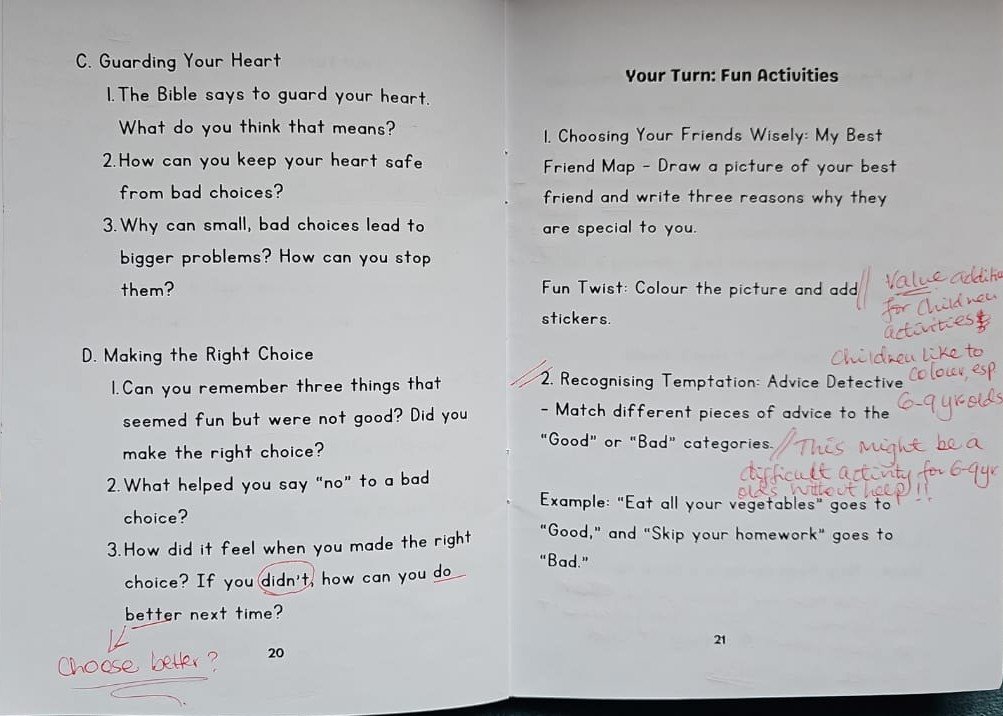 C. Guarding Your Heart
1. The Bible says to guard your heart.
What do you think that means?
2. How can you keep your heart safe
from bad choices?
3. Why can small, bad choices lead to
bigger problems? How can you stop
them?
D. Making the Right Choice
1. Can you remember three things that
seemed fun but were not good? Did you
make the right choice?
2. What helped you say "no" to a bad
choice?
3. How did it feel when you made the right
choice? If you didn't, how can you do
better next time?
Choose better?
20
Your Turn: Fun Activities
1. Choosing Your Friends Wisely: My Best
Friend Map - Draw a picture of your best
friend and write three reasons why they
are special to you.
Fun Twist: Colour the picture and add
stickers.
Value
for Children
activities
Children like to
colour, esp
6-9 yr olds
2. Recognising Temptation: Advice Detective
- Match different pieces of advice to the
"Good" or "Bad" categories.
This might be a
difficult activity for 6-9 yr
olds without help!!
Example: "Eat all your vegetables" goes to
"Good," and "Skip your homework" goes to
"Bad."
21